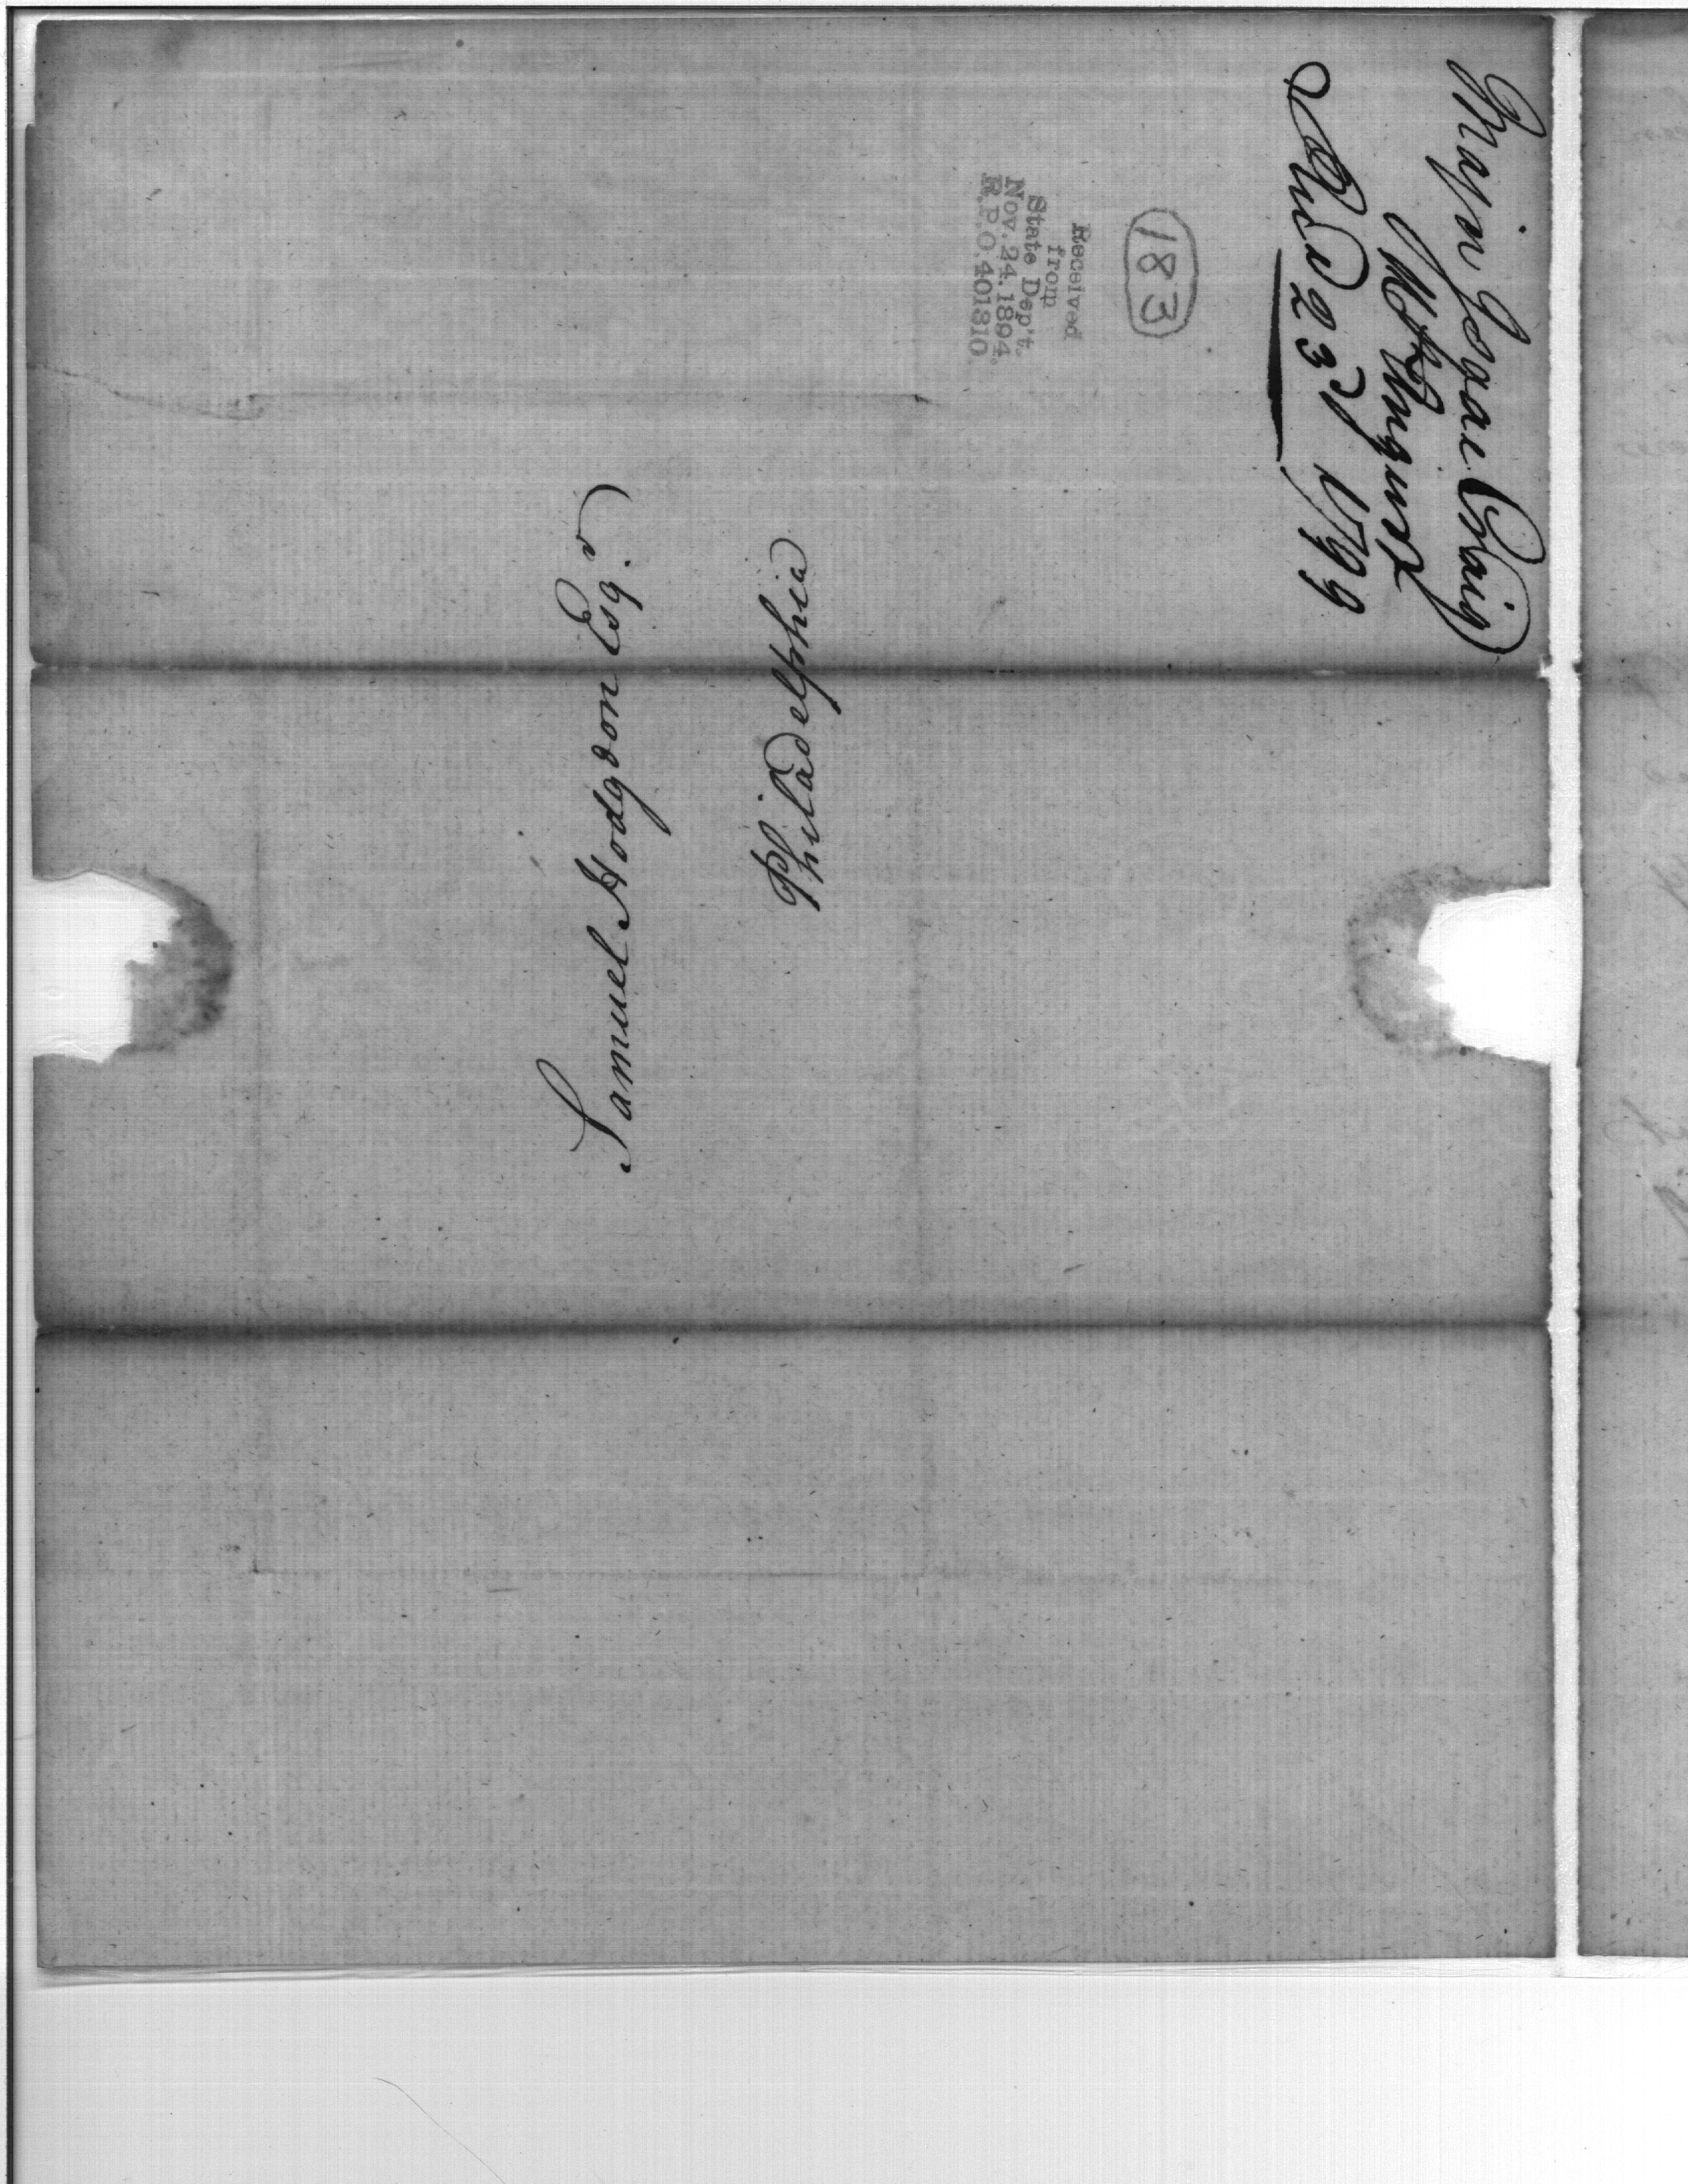 Major Isaac Craig
10th August
Rec'd 23d 1799
183
Received
from
State Dep't.
Nov. 24. 1894.
R.P.O. 401310.
Samuel Hodgdon Esqr
Philadelphia